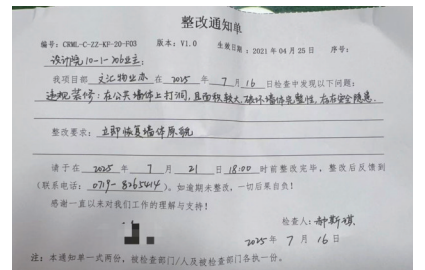 整改通知单
编号：CRML-C-ZZ-KF-20-F03 版本：V1.0 生效日期：2021年04月25日 序号：
设计院10-1-706业主：
我项目部 文汇物业办 在 2025 年 7 月 16 日检查中发现以下问题：
违规装修：在公共墙体上打洞，且面积较大，破坏墙体完整性，存在安全隐患.
整改要求：立即恢复墙体原貌
请于在 2025 年 7 月 21 日 18:00 时前整改完毕，整改后反馈到
（联系电话：0719-8265414）。如逾期未整改，一切后果自负！
感谢一直以来对我们工作的理解与支持！
检查人：郝斯琪
2025年 7 月 16 日
注：本通知单一式两份，被检查部门/人及被检查部门各执一份。